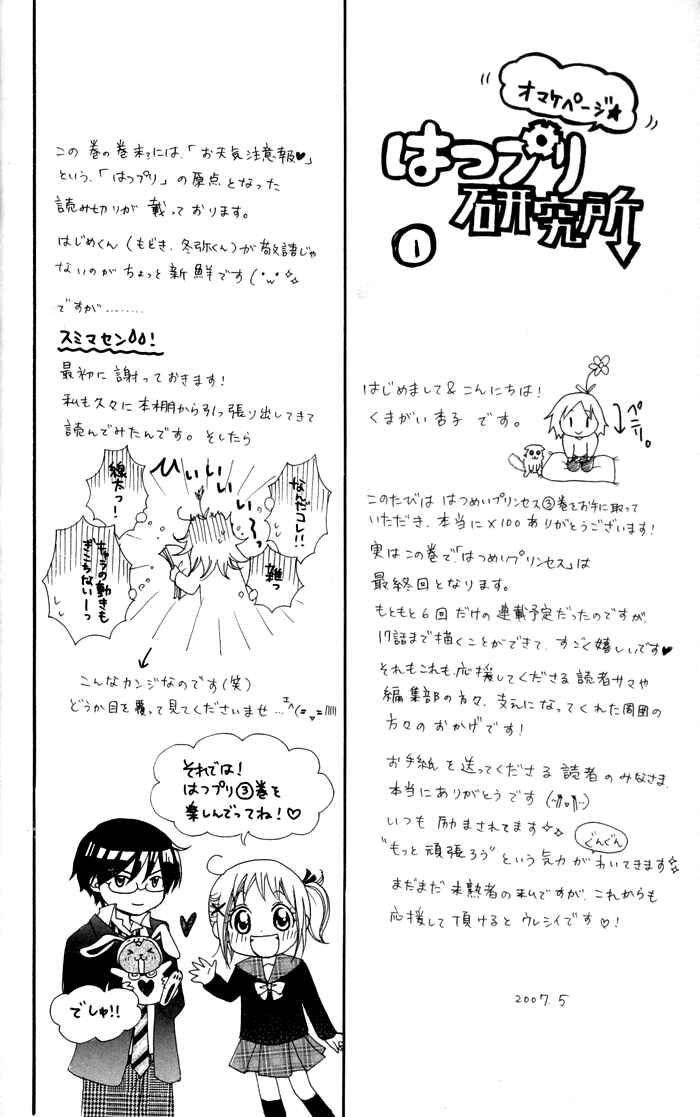 オマケページ★
はつプリ
研究所
①
はじめまして&こんにちは!
くまがい杏子 です。
ペこり。
このたびは はつめいプリンセス③巻をお手に取って
いただき、本当に×100ありがとうございます!
実はこの巻で、「はつめいプリンセス」は
最終回となります。
もともと6回だけの連載予定だったのですが、
17話まで描くことができて、すごく嬉しいです♥
それもこれも応援してくださる読者サマや
編集部の方々、支えになってくれた周囲の
方々のおかげです!
お手紙を送ってくださる読者のみなさま、
本当にありがとうです
いつも励まされてます
ぐんぐん
"もっと頑張ろう"という気力がわいてきます
まだまだ未熟者の私ですが、これからも
応援して頂けるとウレシイです♡!
2007.5
この巻の巻末には、「お天気注意報♥」
という、「はつプリ」の原点となった
読み切りが載っております。
はじめくん(もどき、冬弥くん)が敬語じゃ
ないのがちょっと新鮮です(・w・
ですが………
スミマセン!
最初に謝っておきます!
私も久々に本棚から引っ張り出してきて
読んでみたんです。そしたら
ひぃいいいい〜っ
なんだコレ!!
雑っ
線太っ!
キャラの動きも
ぎこちないーっ
こんなカンジなのです(笑)
どうか目を覆って見てくださいませ…
それでは!
はつプリ③巻を
楽しんでってね!♡
でしゅ!!